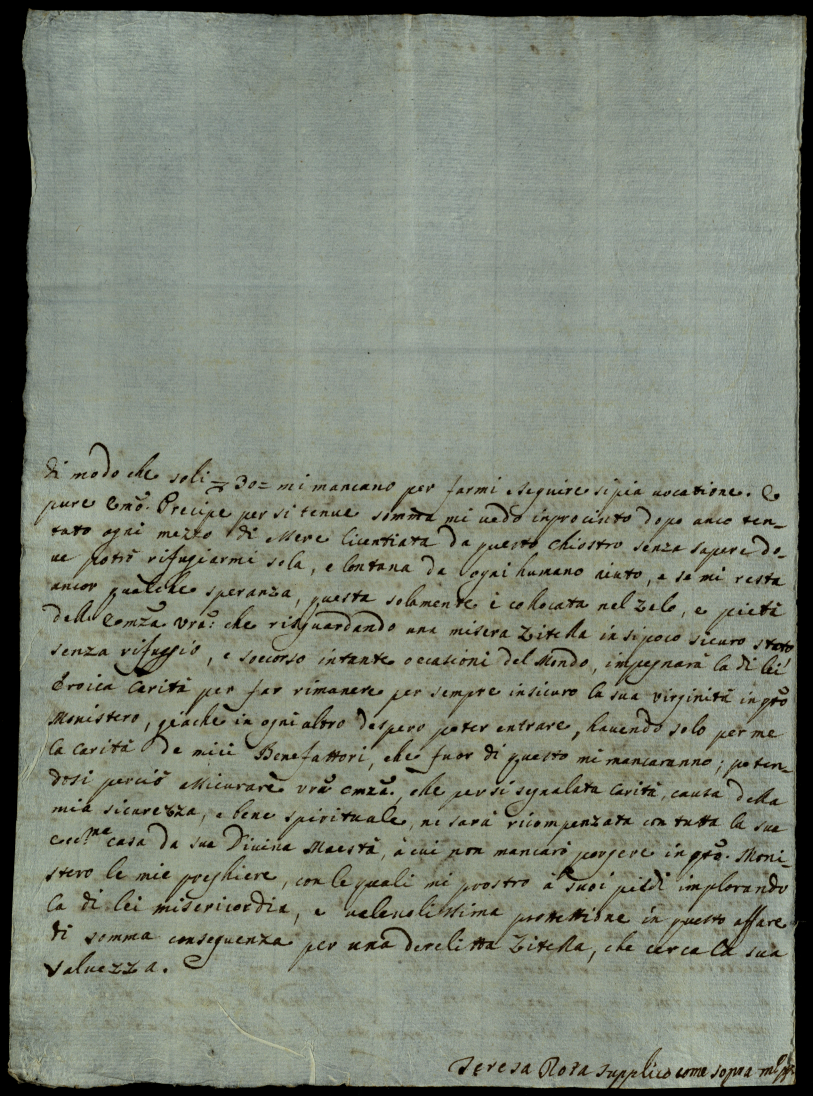 di modo che soli = 30 = mi mancano per farmi seguire sì pia vocatione. E
pure Emõ. Precipe per si tenue somma mi vedo in procinto dopo anco ten-
tato ogni mezzo di essere licentiata da questo Chiostro senza sapere do-
ve potrò rifugiarmi sola, e lontana da ogni humano aiuto, e se mi resta
ancor qualche speranza, questa solamente è collocata nel Zelo, e pietà
dell' Emzã. Vrã: che risguardando una misera Zitella in si poco sicuro stato
senza rifuggio, e soccorso in tante occasioni del Mondo, impegnarà la di lei
Eroica Carità per far rimanere per sempre in sicuro la sua virginità in qsto
Monistero, giache in ogni altro despero poter entrare, havendo solo per me
la carità de miei Benefattori, che fuor di questo mi mancaranno; poten-
dosi perciò assicurare vrã emzã, che per si segnalata Carità, causa della
mia sicurezza, e bene spirituale, ne sarà ricompenzata con tutta la sua
Ecc.ma casa da sua Divina Maestà, à cui non mancarò porgere in qsto. Moni-
stero le mie preghiere, con le quali mi prostro à suoi piedi implorando
la di lei misericordia, e valevolissima protettione in questo affare
di somma conseguenza per una derelitta Zitella, che cerca la sua
salvezza.
Teresa Rosa supplico come sopra